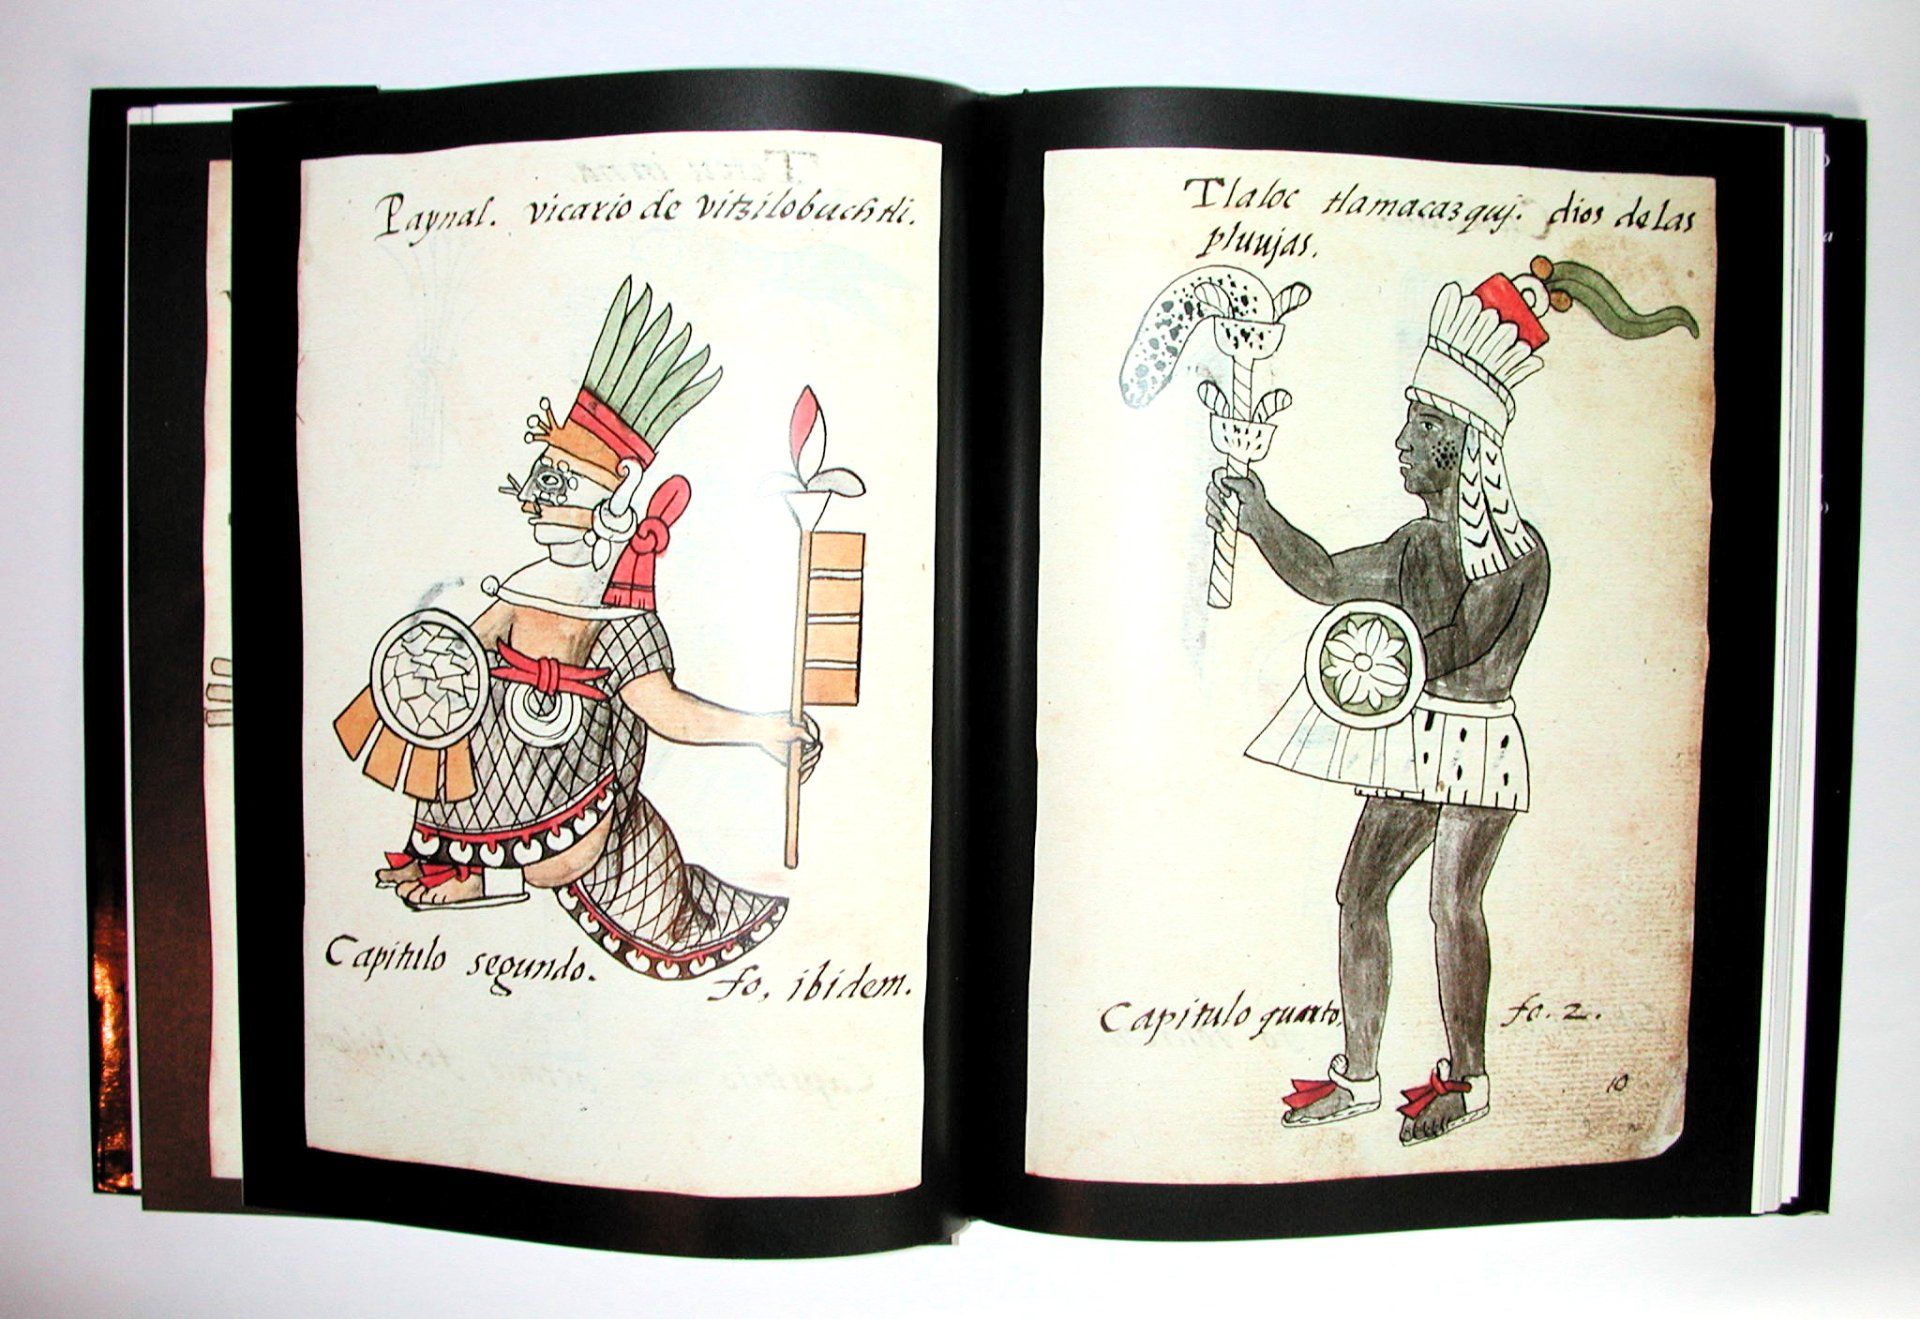 Paynal. vicario de vitzilobuchtli.
Capitulo segundo.
fo, ibidem.
Tlaloc tlamacazquj. dios de las
pluujas.
Capitulo quarto,
fo. 2.
10